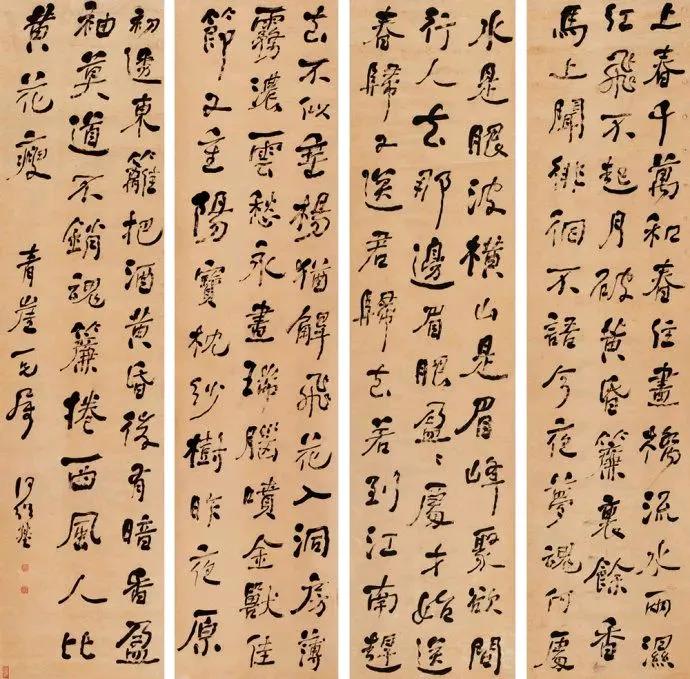 上春千萬和春住畫橋流水雨濕
紅飛不起月破黃昏簾裏餘香
馬上聞徘徊不語今夜夢魂何處
水是眼波橫山是眉峰聚欲問
行人去那邊眉眼盈〻處才始送
春歸又送君歸去若到江南趕
去不似垂楊猶解飛花入洞房薄
霧濃雲愁永晝瑞腦噴金獸佳
節又重陽寶枕紗樹昨夜原
初透東籬把酒黃昏後有暗香盈
袖莫道不銷魂簾捲西風人比
黃花瘦 青崖兄屬 何紹基